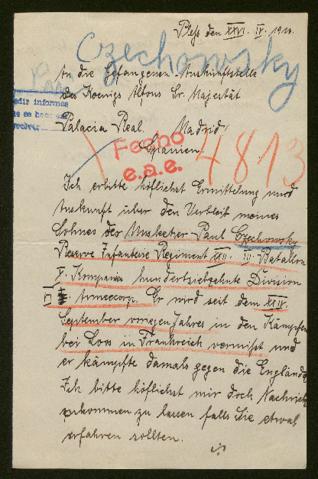 Pless den XXVI. IV. 1916.
Czechowsky
An die Gefangenen Auskunftstelle
des Koenigs Alfons Sr. Majestät
pedir informes
Palacia Real. Madrid
Spanien.
Fecho
e.a.e.
4813
Ich erbitte höflichst Ermittelung und
Auskunft über den Verbleib meines
Sohnes der Musketier Paul Czechowsky
Reserve Infanterie Regiment XXII. III. Batallon
X. Kompanie hundertsiebzehnte Division
Armeecorp. Er wird seit dem XXIV.
September vorigen Jahres in den Kämpfen
bei Loos in Frankreich vermisst und
er kämpfte damals gegen die Engländer
Ich bitte höflichst mir doch Nachricht
zukommen zu lassen falls Sie etwas
erfahren sollten.